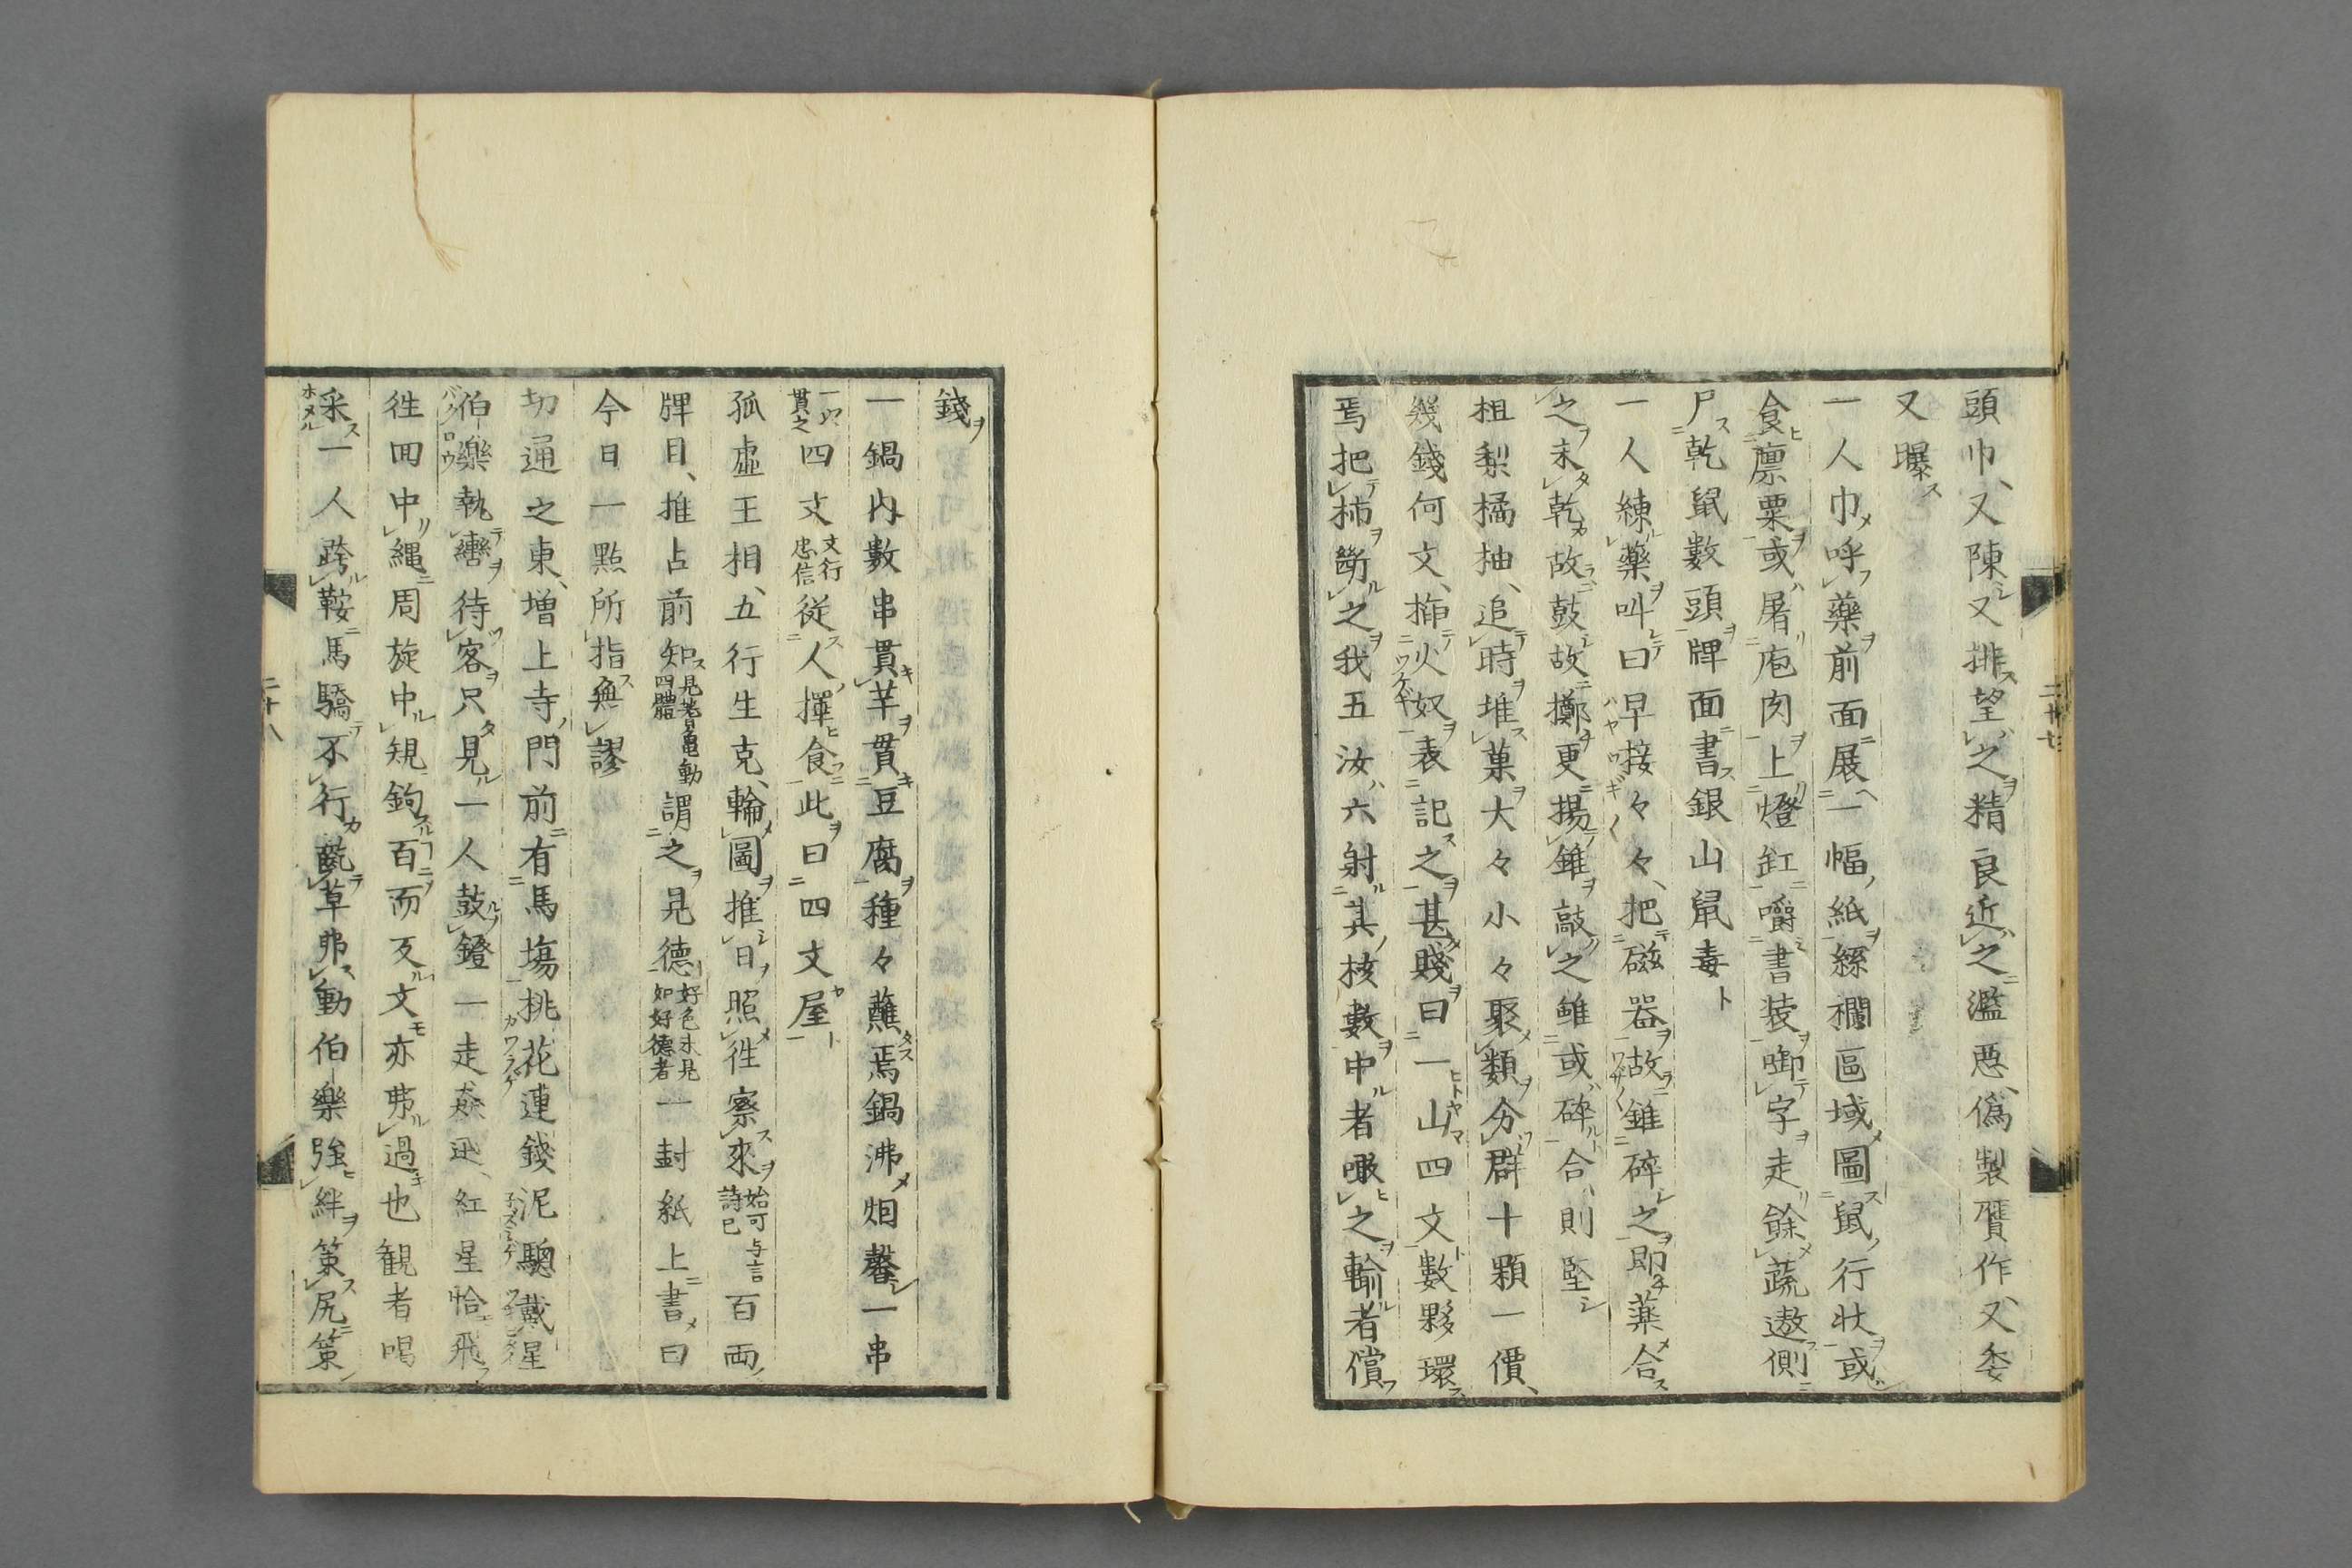 頭巾、又陳又排望之精良近之濫悪、偽製贋作、又委
又曝
一人巾呼藥前面展一幅紙縣欄區域圖鼠行状或
食凛粟或屠庖肉上燈缸嚼書装啣字走餘蔬遨側
尸乾鼠數頭牌面書銀山鼠毒
一人練藥叫曰早接々々、把磁器故錐碎之即薬合
之未乾故鼓故擲更揚錐敲之雖或碎合則墜
柤梨橘柚、追時堆菓大々小々聚類分群十顆一價、
幾錢何文、揷火奴表記之甚賤曰一山四文數夥環
焉把柿斷之我五汝六射其核數中者噉之輸者償
二十七
錢
一鍋内數串貫芋貫豆腐種々蘸焉鍋沸烟馨一串
一以貫之四文文行忠信従人擇食此曰四文屋
孤虚王相、五行生克、輪圖推日照徃察來始可与言詩已百両
牌日、推占前知見著龜動四體謂之見德好色未見如好德者一封紙上書曰
今日一點所指無謬
切通之東、增上寺門前有馬塲挑花連錢泥驄戴星
伯樂執轡待客只見一人鼓鐙一走猋迅、紅星恰飛
徃回中縄周旋中規鉤百而反文亦弗過也観者喝
采一人跨鞍馬驕不行齕草弗動伯樂強絆策尻策
二十八